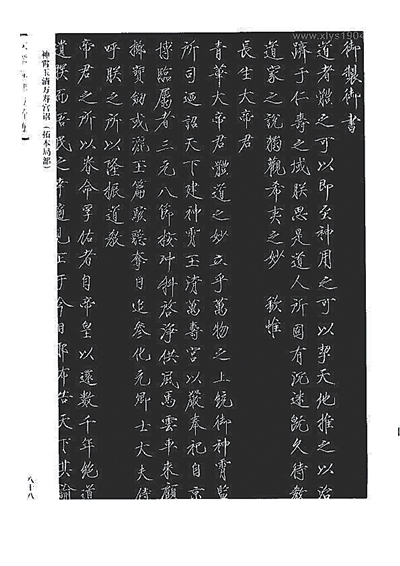 御製御書
道者體之可以即至神用之可以挈天地推之以治
躋于仁壽之域朕思是道人所固有沉迷既久待教
道家之說獨觀希夷之妙 欽惟
長生大帝君
青華大帝君體道之妙立乎萬物之上統御神霄監
所司迺詔天下建神霄玉清萬壽宮以嚴奉祀自京
博臨屬者三元八節按冲科啓淨供風馬雲車來顧
擲劍或流玉篇駭聽奪目追參化元卿士大夫侍
呼朕之所以隆振道教
帝君之所以眷命孚佑者自帝皇以還數千年絶道
遺朕而吾民之幸適見正于今日耶布告天下其諭
神霄玉清万寿宫诏（拓本局部）
八十八
www.xlys1904